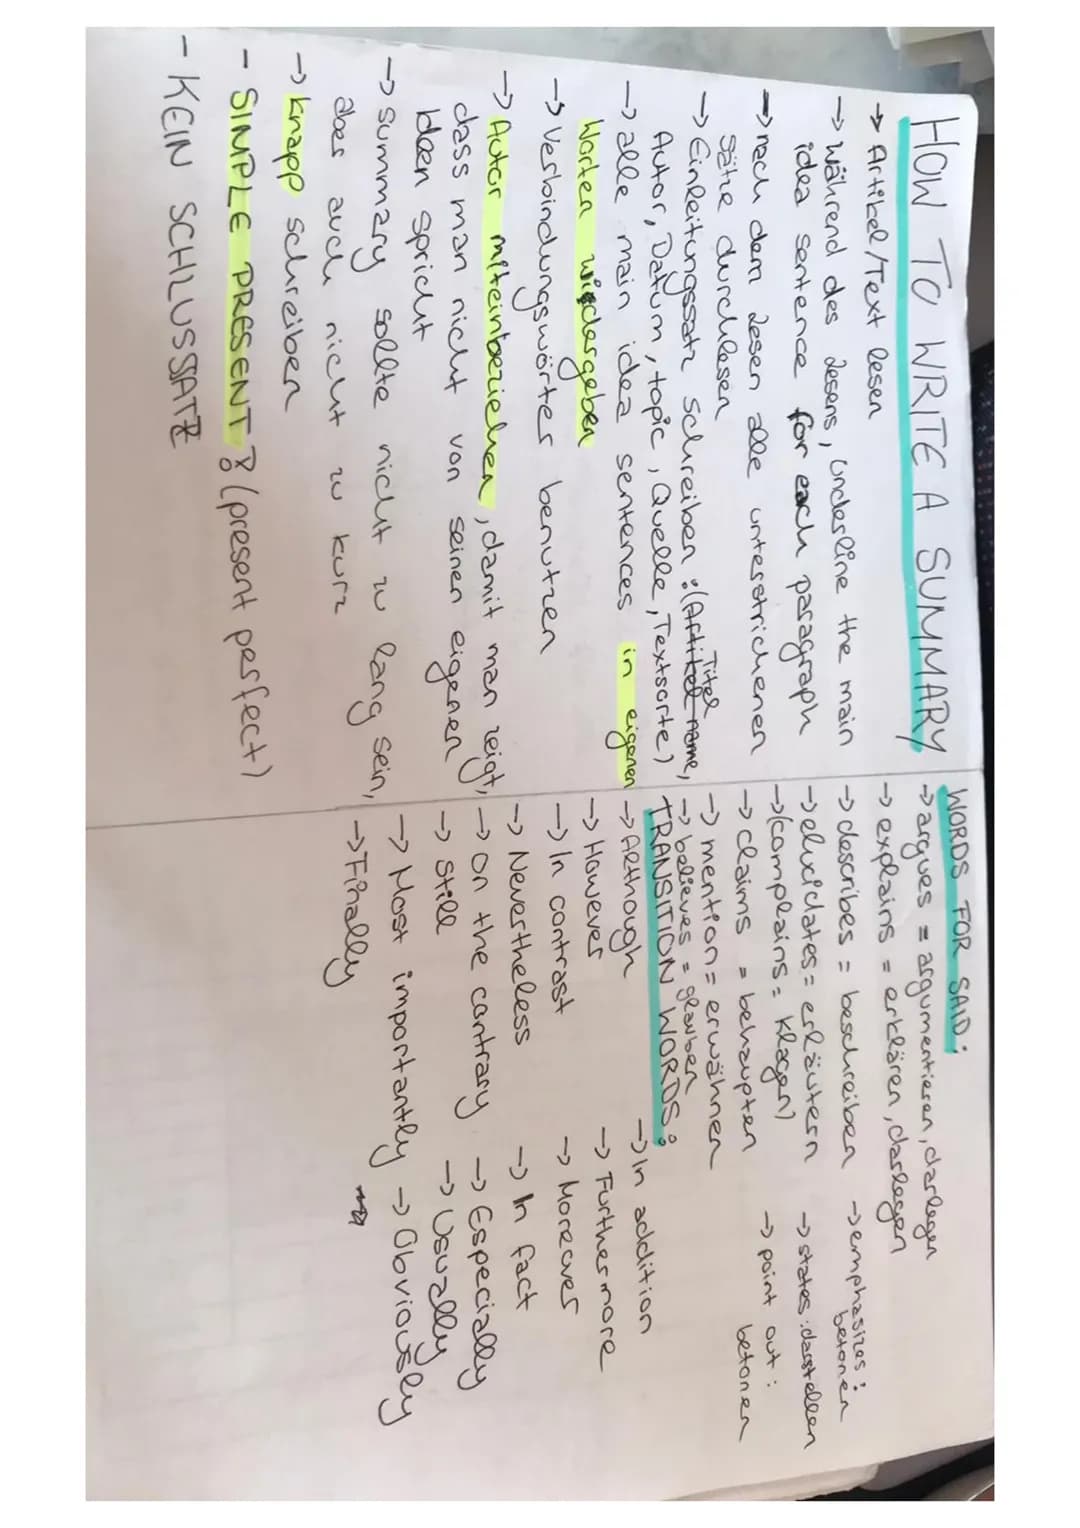 HOW TO WRITE A SUMMARY
→ Artikel/Text lesen
→ während des Lesens, underline the main
idea sentence for each paragraph
→ nach dem Lesen alle unterstrichenen
Sätze durchlesen
→ Einleitungssatz schreiben :(Artikel name, Titel
Autor, Datum, topic, Quelle, Textsorte)
→ alle main idea sentences in eigenen
Worten wiedergeben
→ Verbindungswörter benutzen
→ Autor miteinbeziehen, damit man zeigt,
dass man nicht von seinen eigenen
Ideen spricht
→ Summary sollte nicht zu lang sein,
aber auch nicht zu kurz
→ knapp schreiben
- SIMPLE PRESENT (present perfect)
- KEIN SCHLUSSSATZ
WORDS FOR SAID:
→ argues = argumentieren, darlegen
→ explains = erklären, darlegen
→ describes = beschreiben
→ elucidates = erläutern
→ (complains = klagen)
→ claims = behaupten
→ mention = erwähnen
→ believes = glauben
→ emphasizes:
betonen
→ states: darstellen
→ point out:
betonen
TRANSITION WORDS:
→ Although
→ However
→ In contrast
→ Nevertheless
→ On the contrary
→ Still
→ Most importantly
→ Finally
→ In addition
→ Furthermore
→ Moreover
→ In fact
→ Especially
→ Usually
→ Obviously